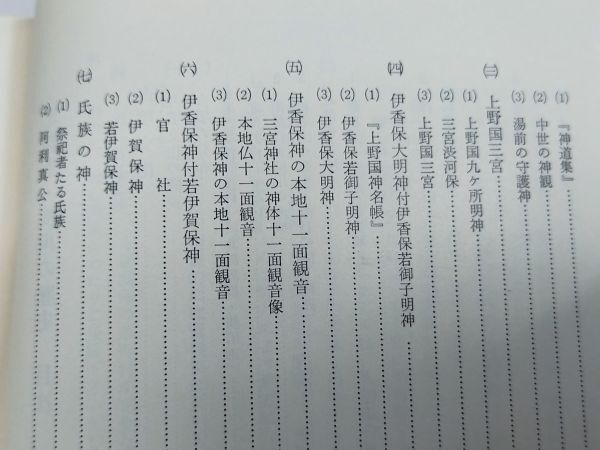 (1) 『神道集』
(2) 中世の神観
(3) 湯前の守護神
㈢ 上野国三宮
(1) 上野国九ヶ所明神
(2) 三宮渋河保
(3) 上野国三宮
㈣ 伊香保大明神付伊香保若御子明神
(1) 『上野国神名帳』
(2) 伊香保若御子明神
(3) 伊香保大明神
㈤ 伊香保神の本地十一面観音
(1) 三宮神社の神体十一面観音像
(2) 本地仏十一面観音
(3) 伊香保神の本地十一面観音
㈥ 伊香保神付若伊賀保神
(1) 官社
(2) 伊賀保神
(3) 若伊賀保神
㈦ 氏族の神
(1) 祭祀者たる氏族
(2) 阿利真公